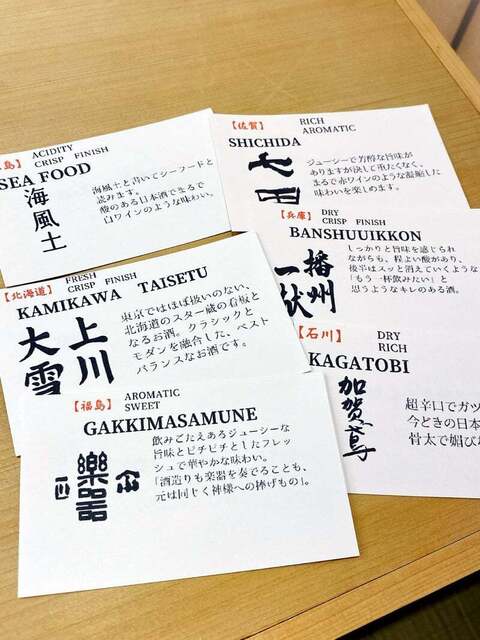 島】
ACIDITY
CRISP FINISH
SEA FOOD
海風土
海風土と書いてシーフードと
読みます。
酸のある日本酒でまるで
白ワインのような味わい。
【佐賀】
RICH
AROMATIC
SHICHIDA
七田
ジューシーで芳醇な旨味が
ありますが決して重たくなく、
まるで赤ワインのような凝縮した
味わいを楽しめます。
【北海道】
FRESH
CRISP FINISH
KAMIKAWA TAISETU
上川
大雪
東京ではほぼ扱いのない、
北海道のスター蔵の看板と
なるお酒。クラシックと
モダンを融合した、ベスト
バランスなお酒です。
【兵庫】
DRY
CRISP FINISH
BANSHUUIKKON
播州
一献
しっかりと旨味を感じられ
ながらも、程よい酸があり、
後半はスッと消えていくような
「もう一杯飲みたい」と
思うようなキレのある酒。
【石川】
DRY
RICH
KAGATOBI
加賀鳶
超辛口でガツ
今どきの日本
骨太で媚びな
【福島】
AROMATIC
SWEET
GAKKIMASAMUNE
樂器
正宗
飲みごたえあるジューシーな
旨味とピチピチとしたフレッ
シュで華やかな味わい。
「酒造りも楽器を奏でることも、
元は同じく神様への捧げもの」。